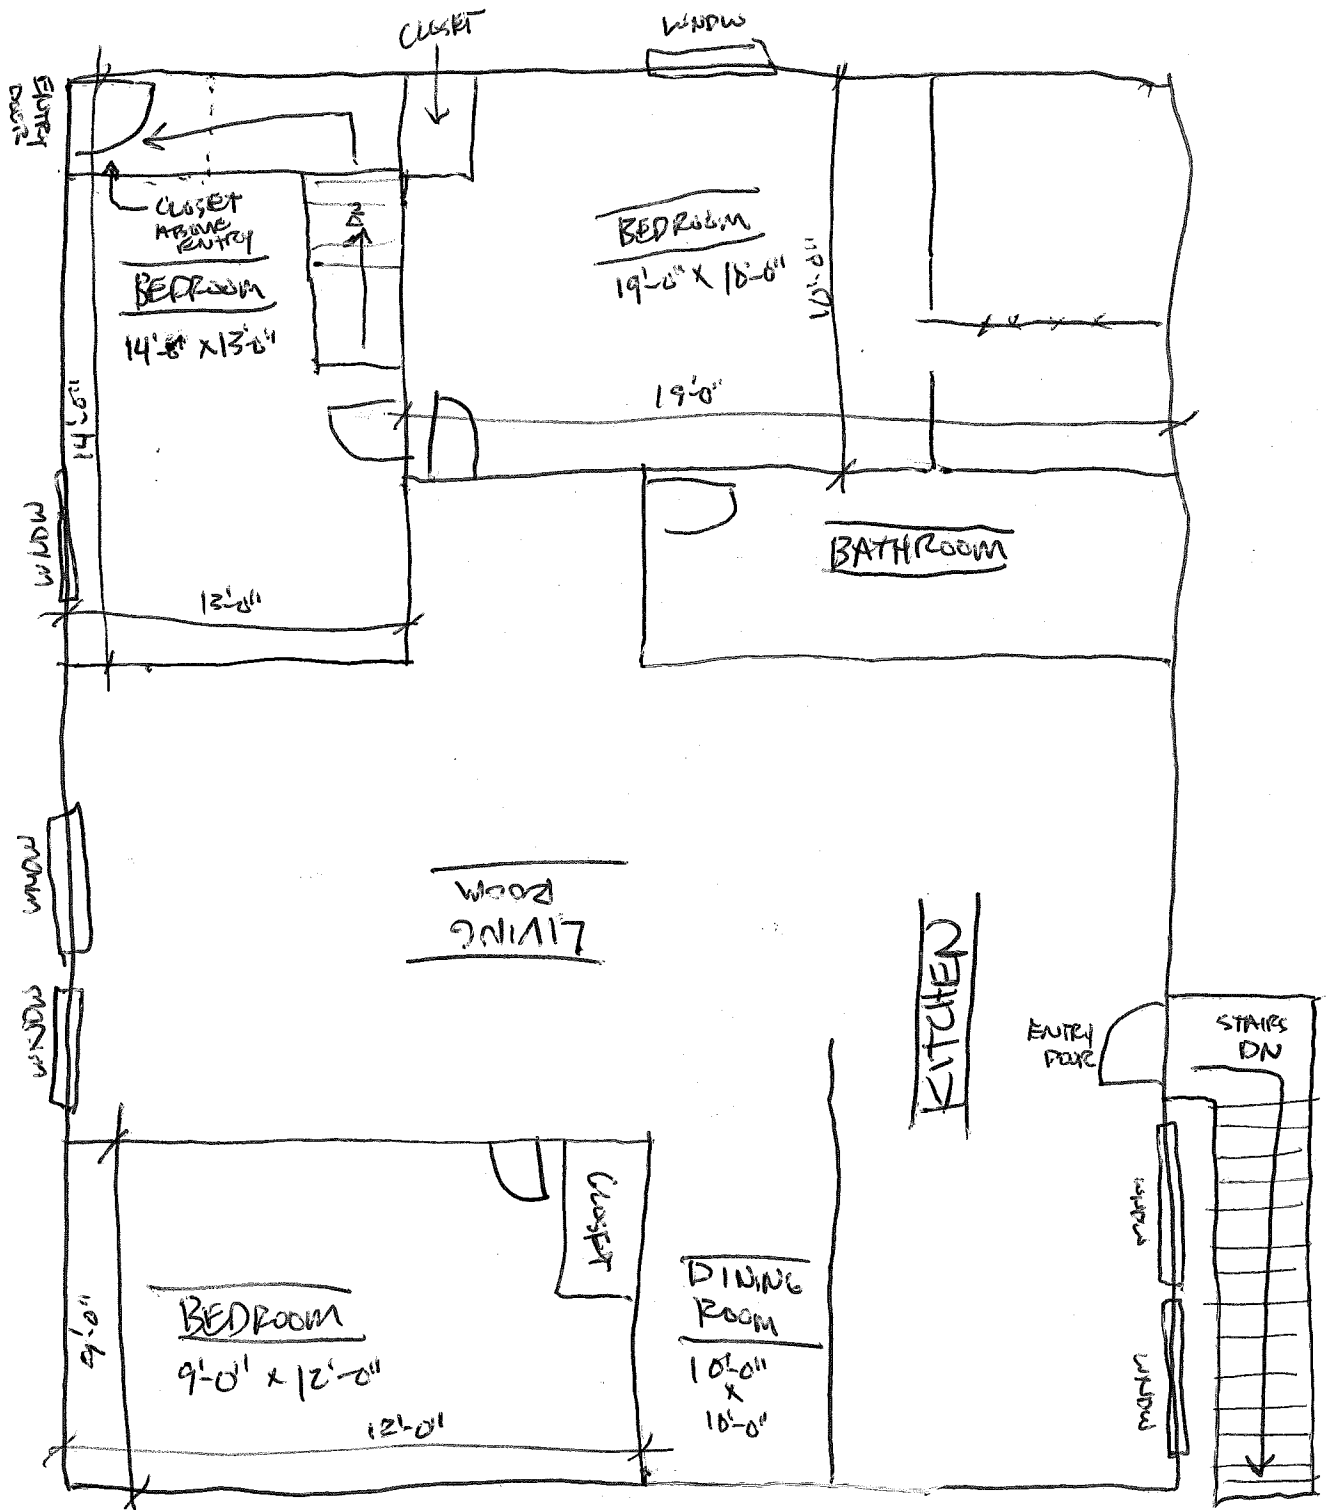 CLOSET
WINDW
ENTRY
DOOR
CLOSET
ABOVE
ENTRY
BEDROOM
14'-0" X 13'-0"
14'-0"
13'-0"
WNDW
BEDROOM
19'-0" X 10'-0"
19'-0"
BATHROOM
WNDW
WNDW
LIVING
ROOM
KITCHEN
ENTRY
DOOR
STAIRS
DN
CLOSET
BEDROOM
9'-0" X 12'-0"
9'-0"
12'-0"
DINING
ROOM
10'-0"
X
10'-0"
WNDW
WNDW